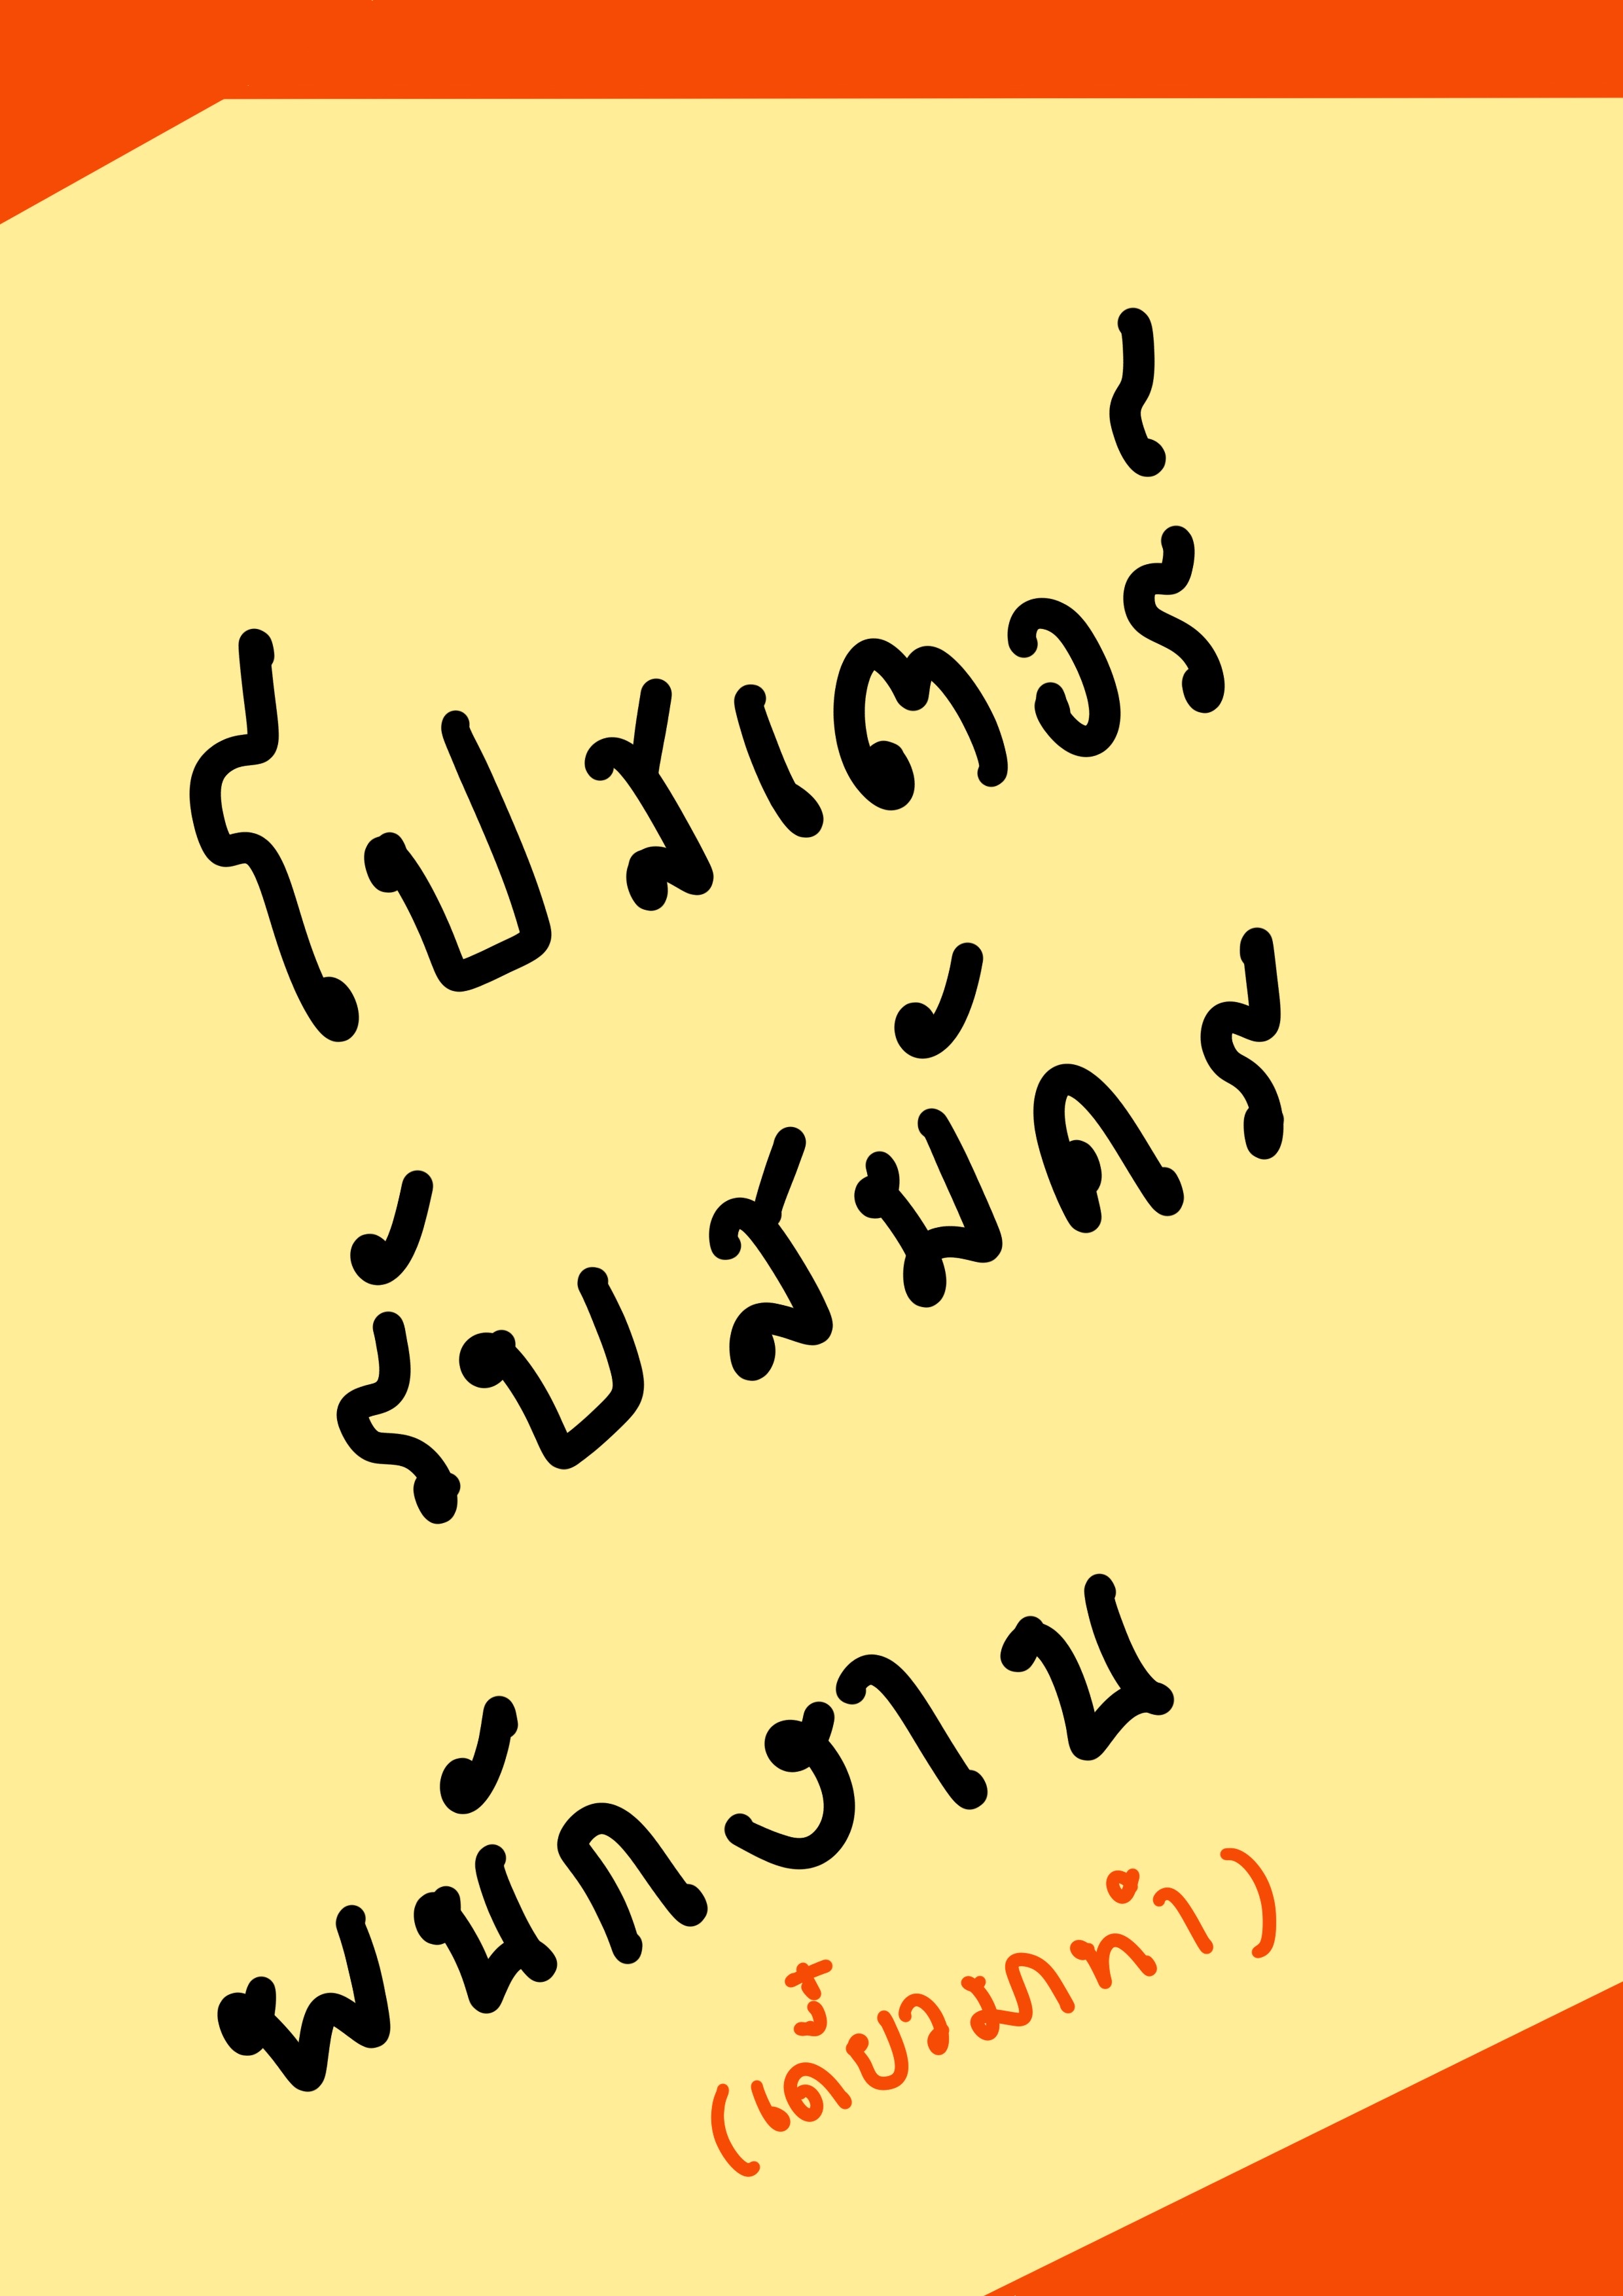 โปสเตอร์
รับสมัคร
พนักงาน
(เดี๋ยวมาทำ)